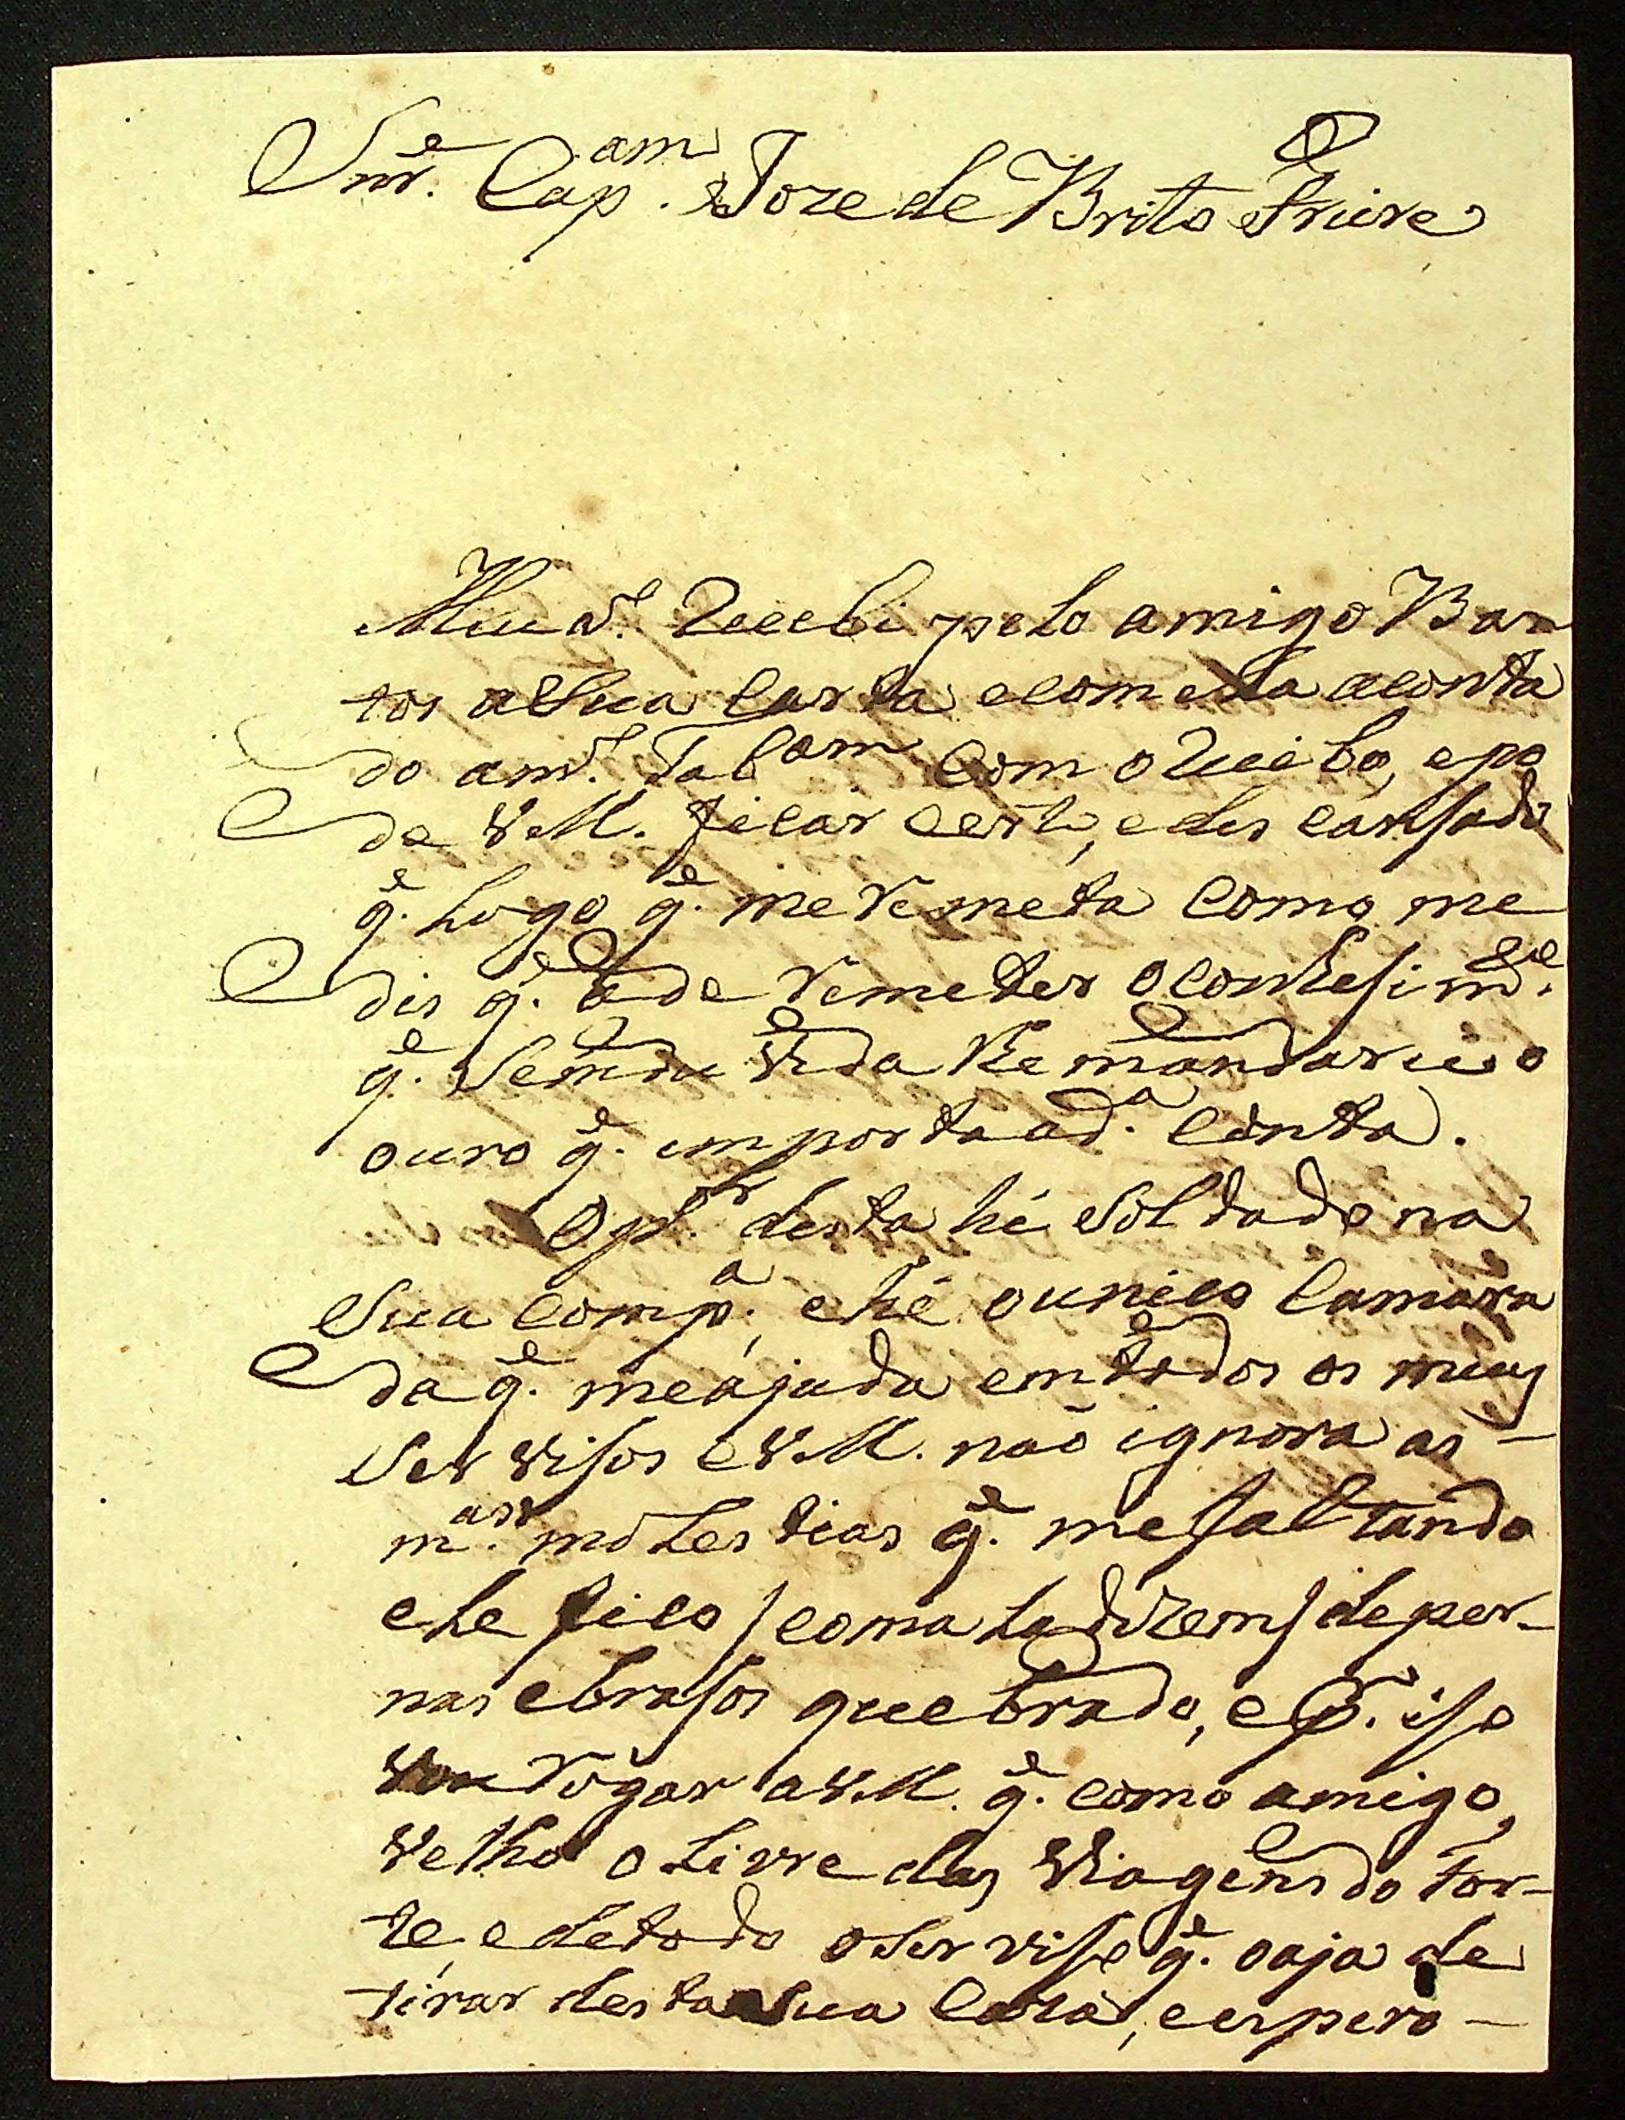 Snr.e Cap.am Joze de Brito Friire
Meu a.o Recebi pelo amigo Bar
tos a Sua Carta e com ela a conta
do am.o Tab.am Com o Recibo, e po
de V M. ficar certo, e des cansado
q.e Logo q.e me Remeta como me
dis q.e a de Remeter o conhesim.to
q.e Sem du vida lhe mandarei o
ouro q.e importa a d.a Conta.
O p.or desta hé Soldado na
Sua Comp.a, e hé o unico Camara
da q.e me ajuda em todos os meus
Ser visos e V M. não ignora as
m.as moLes tias q.e me faltando
ele fico / coma La dizem / de per-
nas e brasos quebrado, e P.r iso
Vou Rogar a V M. q.e como amigo,
Velho o Livre das Viagens do For-
te, e de todo o Ser viso q.e oaja de
tirar desta Sua Caza, e espero -